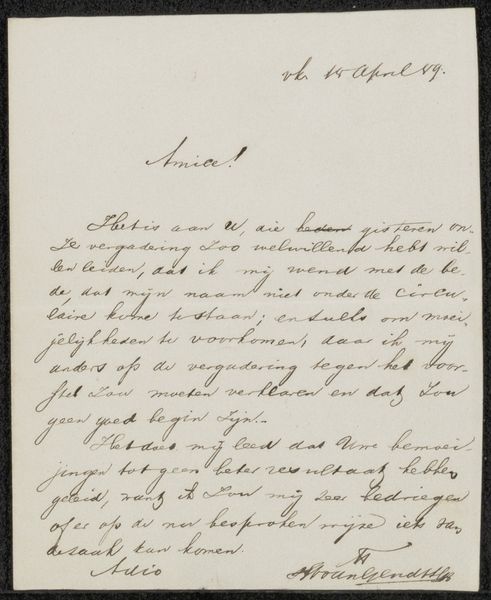 18 April 89.
Amice!
Het is aan U, die heden gisteren on-
ze vergadering zoo welwillend hebt wil-
len leiden, dat ik mij wend met de be-
de, dat mijn naam niet onder de circu-
laire kome te staan; en zulks om moei-
jelijkheden te voorkomen, daar ik mij
anders op de vergadering tegen het voor-
stel zou moeten verklaren en dat zou
geen goed begin zijn.-
Het doet mij leed dat Uwe bemoei-
jingen tot geen beter resultaat hebben
geleid, want ik zou mij zeer bedriegen
of er op de nu besproken wijze iets van
de zaak kan komen.
Adio